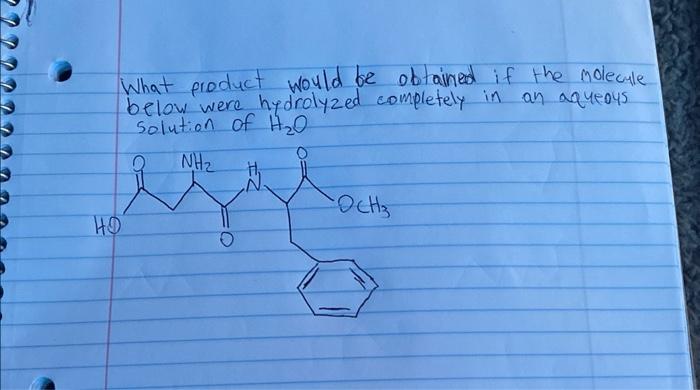 What product would be obtained if the molecule
below were hydrolyzed completely in an aqueous
solution of H₂O
O NH₂ H O
N
OCH₃
HO O